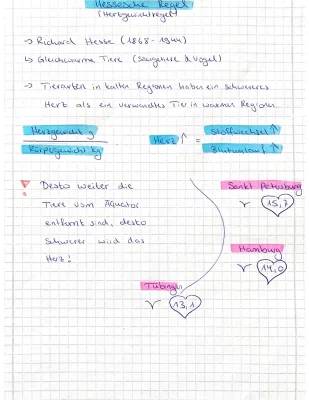 Hessesche Regel
(Herzgewichtregel)
→ Richard Hesse (1868-1944)
↳ Gleichwarme Tiere (Säugetiere & Vögel)
→ Tierarten in kalten Regionen haben ein schwereres
Herz als ein verwandtes Tier in warmen Regionen.
Herzgewicht g
Körpergewicht kg
Herz ↑ = Stoffwechsel ↑
Blutumlauf ↑
! Desto weiter die
Tiere vom Äquator
entfernt sind, desto
schwerer wird das
Herz!
Sankt Petersburg
15,7
Hamburg
14,0
Tübingen
13,1